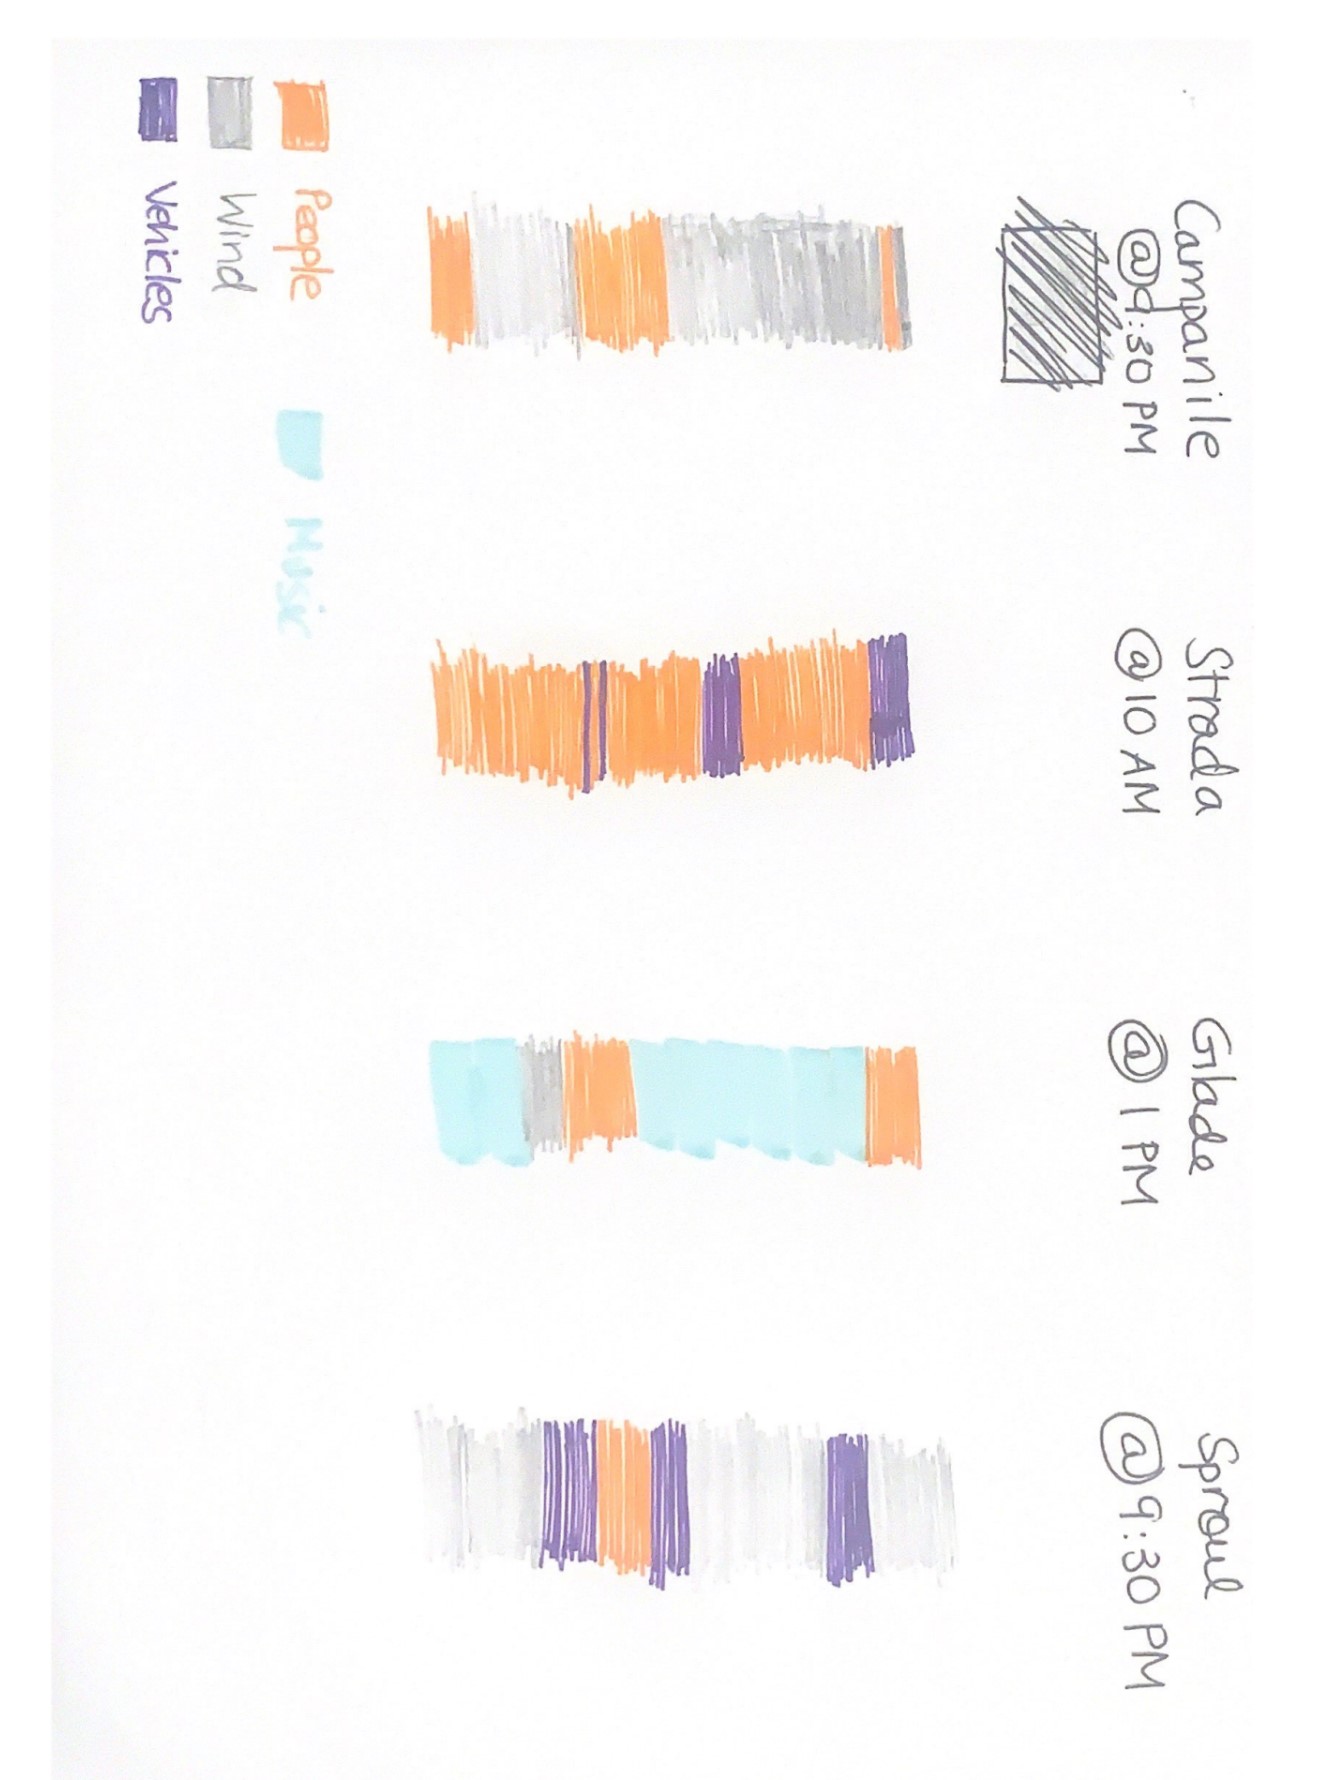 Campanile
@9:30 PM
Strada
@10 AM
Glade
@ 1 PM
Sproul
@9:30 PM
People
Music
Wind
Vehicles